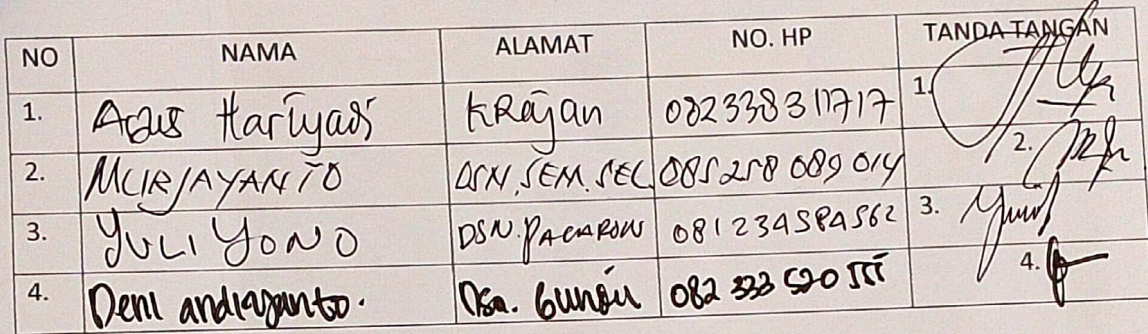 NO NAMA ALAMAT NO. HP TANDA TANGAN
1. Agus Hariyadi KRajan 082338311717 1.
2. MURJAYANTO DSN. SEM. SEL. 085258089014 2.
3. YULI YONO DSN. PACARON 081234584562 3.
4. Deni andriayanto. Dsn. 082 333 520 555 4.